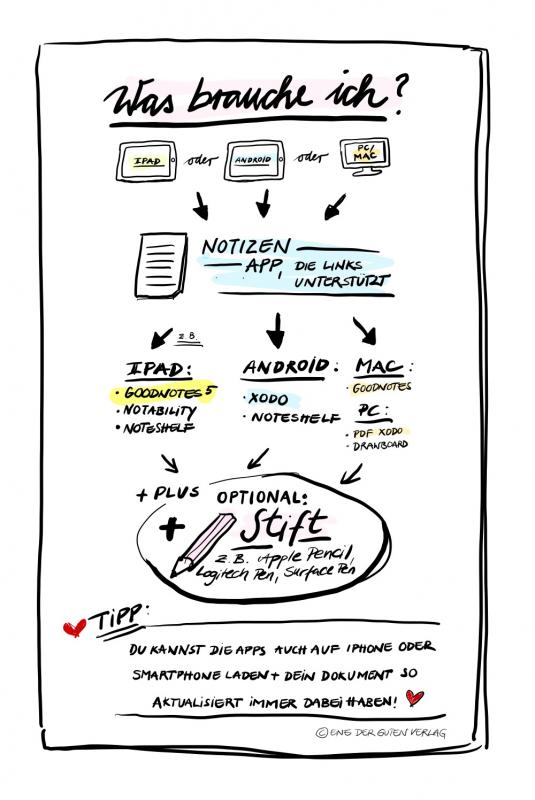 Was brauche ich?
IPAD oder ANDROID oder PC/
MAC
NOTIZEN
APP, DIE LINKS
UNTERSTÜTZT
z.B.
IPAD:
· GOODNOTES 5
· NOTABILITY
· NOTESHELF
ANDROID:
· XODO
· NOTESHELF
MAC:
· GOODNOTES
PC:
· PDF XODO
· DRANBOARD
+ PLUS OPTIONAL:
+ Stift
z.B. Apple Pencil,
Logitech Pen, Surface Pen
TIPP:
DU KANNST DIE APPS AUCH AUF IPHONE ODER
SMARTPHONE LADEN + DEIN DOKUMENT SO
AKTUALISIERT IMMER DABEI HABEN!
© EINE DER GUTEN VERLAG